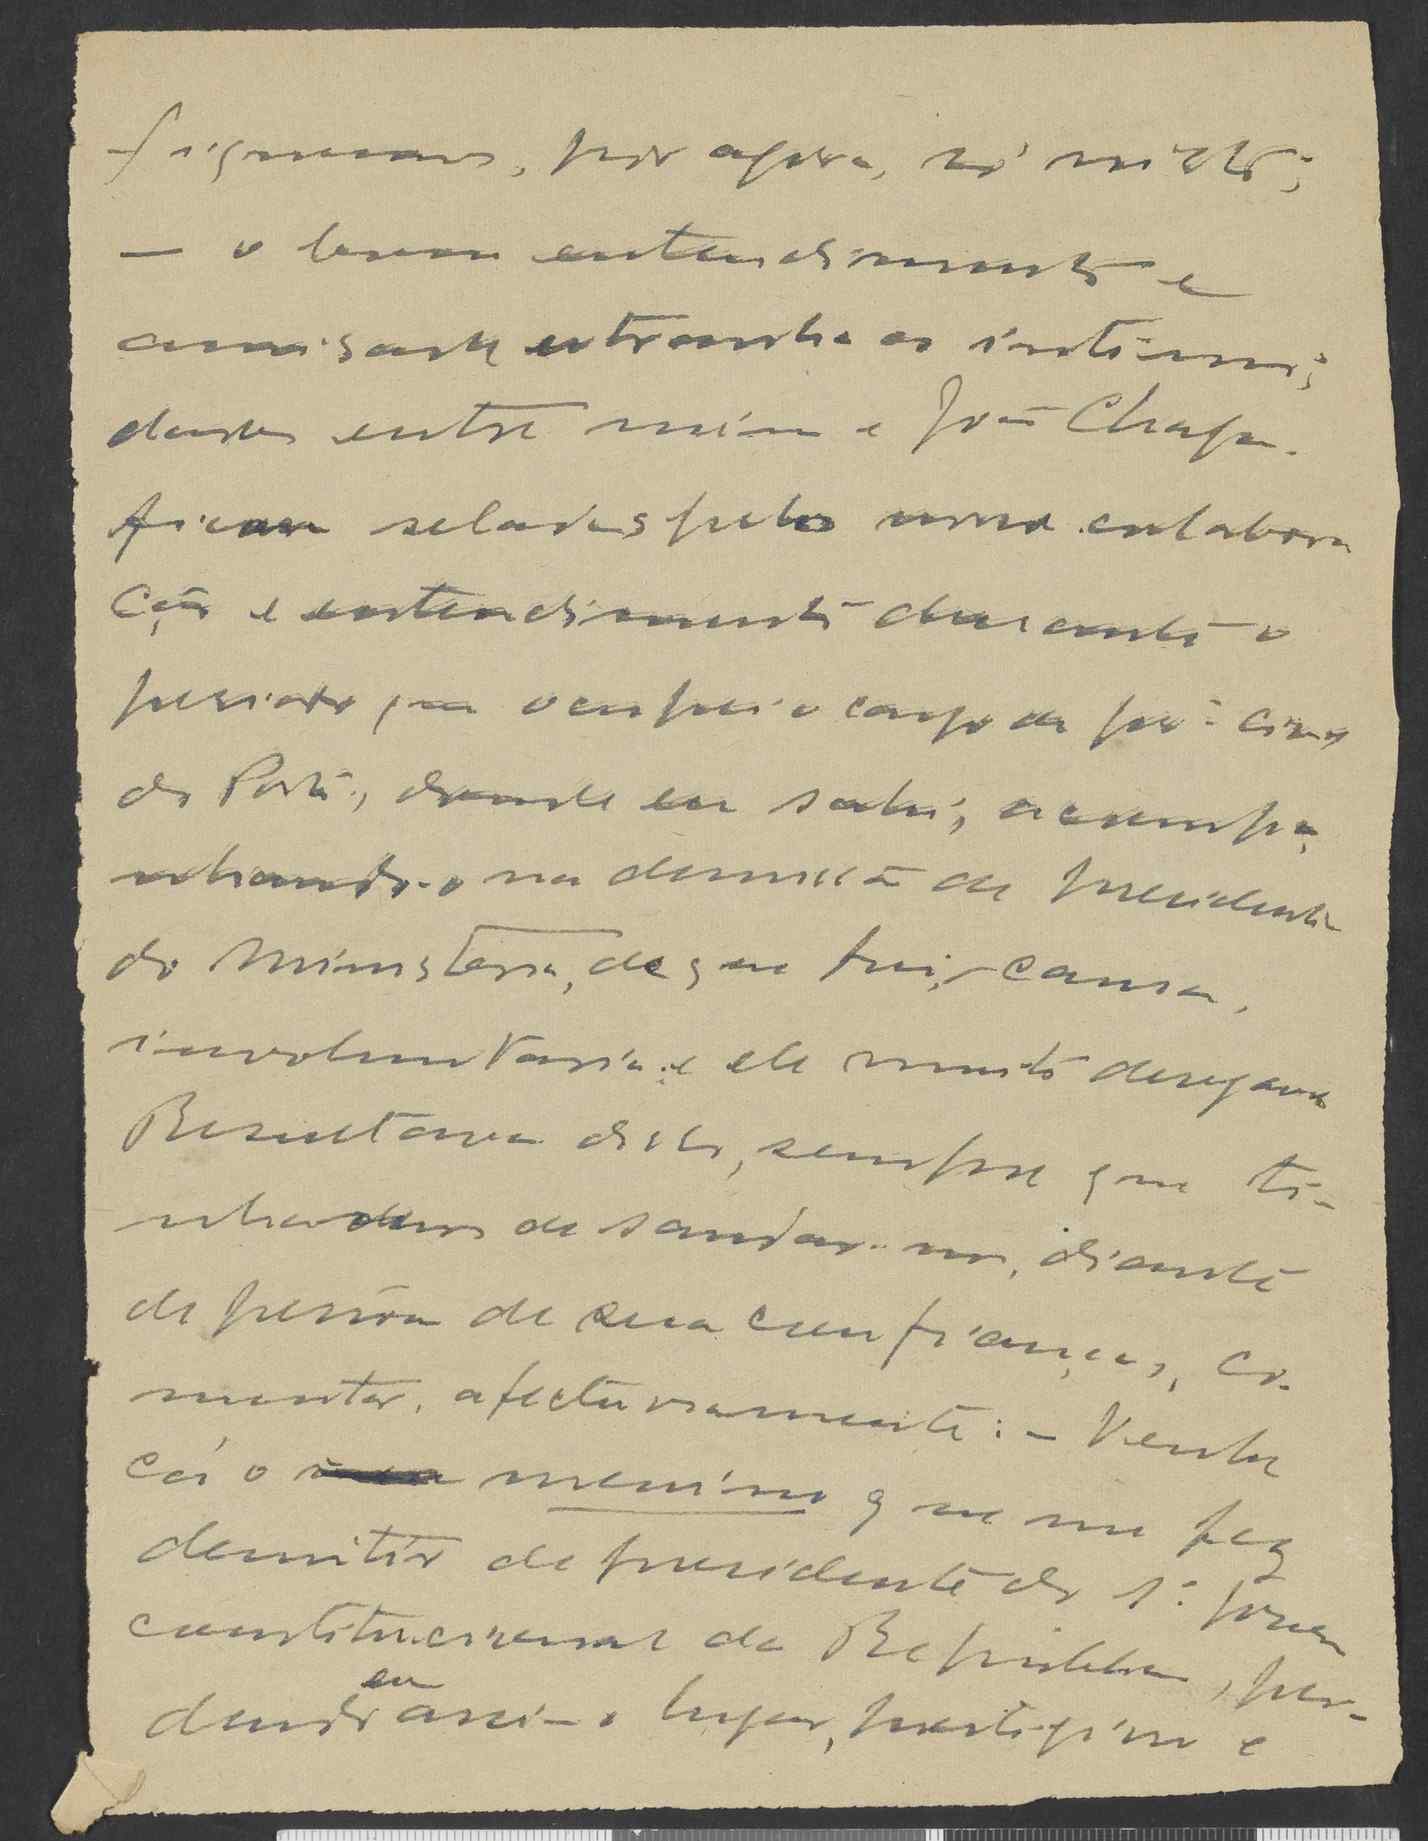 Fiquemos, por agora, só nisto;
— o bom entendimento e
amisade entranha as intimi-
dades entre mim e João Chagas.
ficam seladas pela nossa colabora
ção e entendimento durante o
periodo que ocupei o cargo de gov.or civil
do Porto, donde eu sahi, acompa-
nhando-o na demissão de presidente
do Ministerio, de que fui, causa,
involuntaria e ele muito desejava
Resultava disto, sempre que ti-
nhamos de saudar-nos, diante
de pessoa de sua confiança, co-
mentar, afectuosamente: — Venha
cá o menino que me fez
demitir de presidente do 1.º governo
constitucional da Republica, per-
dendo eu assim o lugar, prestigioso e